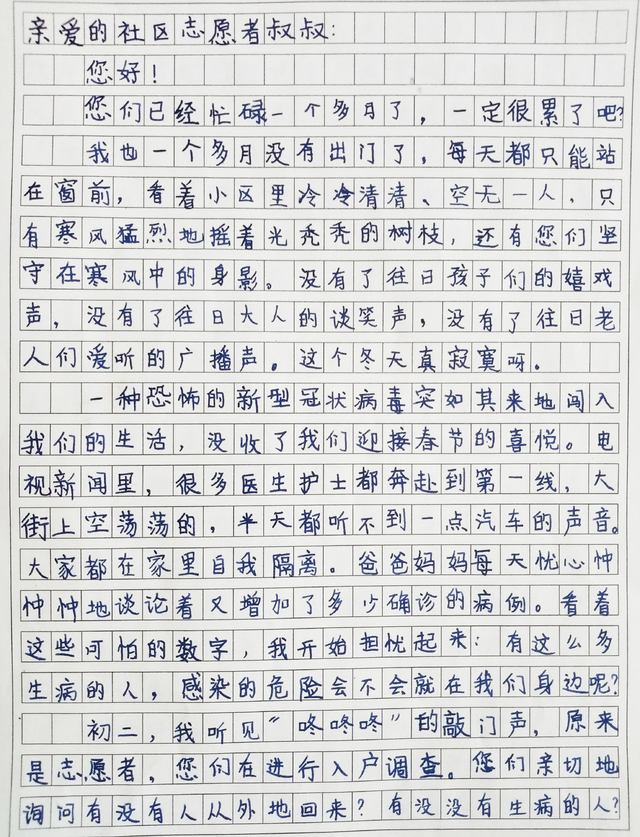 亲爱的社区志愿者叔叔:
您好!
您们已经忙碌一个多月了,一定很累了吧?
我也一个多月没有出门了,每天都只能站
在窗前,看着小区里冷冷清清、空无一人、只
有寒风猛烈地摇着光秃秃的树枝,还有您们坚
守在寒风中的身影。没有了往日孩子们的嬉戏
声,没有了往日大人的谈笑声,没有了往日老
人们爱听的广播声。这个冬天真寂寞呀。
一种恐怖的新型冠状病毒突如其来地闯入
我们的生活,没收了我们迎接春节的喜悦。电
视新闻里,很多医生护士都奔赴到第一线,大
街上空荡荡的,半天都听不到一点汽车的声音。
大家都在家里自我隔离。爸爸妈妈每天忧心忡
忡地谈论着又增加了多少确诊的病例。看着
这些可怕的数字,我开始担忧起来:有这么多
生病的人,感染的危险会不会就在我们身边呢?
初二,我听见“咚咚咚”的敲门声,原来
是志愿者,您们在进行入户调查。您们亲切地
询问有没有人从外地回来?有没没有生病的人?